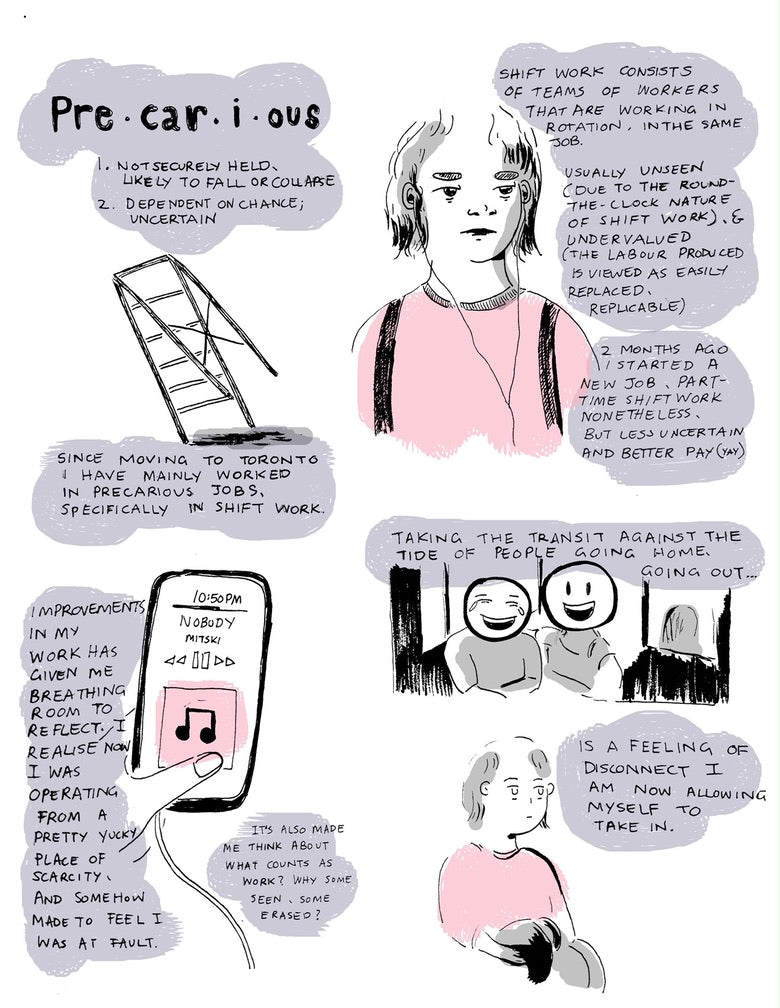 Pre·car·i·ous
1. NOT SECURELY HELD,
LIKELY TO FALL OR COLLAPSE
2. DEPENDENT ON CHANCE;
UNCERTAIN
SINCE MOVING TO TORONTO
I HAVE MAINLY WORKED
IN PRECARIOUS JOBS,
SPECIFICALLY IN SHIFT WORK.
SHIFT WORK CONSISTS
OF TEAMS OF WORKERS
THAT ARE WORKING IN
ROTATION, IN THE SAME
JOB.
USUALLY UNSEEN
(DUE TO THE ROUND-
THE-CLOCK NATURE
OF SHIFT WORK), &
UNDERVALUED
(THE LABOUR PRODUCED
IS VIEWED AS EASILY
REPLACED,
REPLICABLE)
2 MONTHS AGO
I STARTED A
NEW JOB, PART-
TIME SHIFT WORK
NONETHELESS,
BUT LESS UNCERTAIN
AND BETTER PAY (YAY)
IMPROVEMENTS
IN MY
WORK HAS
GIVEN ME
BREATHING
ROOM TO
REFLECT. I
REALISE NOW
I WAS
OPERATING
FROM A
PRETTY YUCKY
PLACE OF
SCARCITY,
AND SOMEHOW
MADE TO FEEL I
WAS AT FAULT.
10:50PM
NOBODY
MITSKI
IT'S ALSO MADE
ME THINK ABOUT
WHAT COUNTS AS
WORK? WHY SOME
SEEN, SOME
ERASED?
TAKING THE TRANSIT AGAINST THE
TIDE OF PEOPLE GOING HOME,
GOING OUT...
IS A FEELING OF
DISCONNECT I
AM NOW ALLOWING
MYSELF TO
TAKE IN.